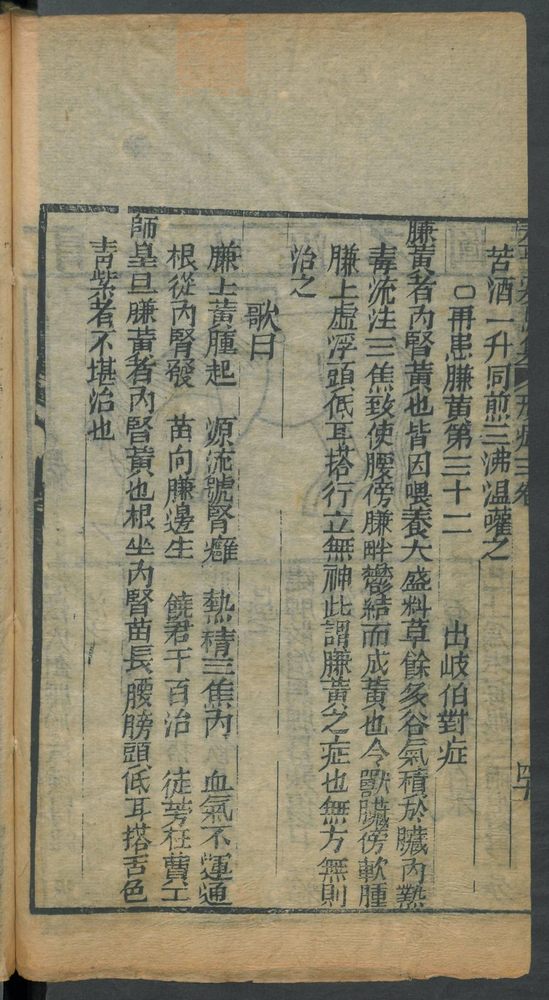 苦酒一升同煎三沸温嚾之
○再患膁黄第三十二 出岐伯對症
膁黄者内腎黄也皆因喂養大盛料草餘多谷氣積於臟内熱
毒流注三焦致使腰傍膁畔鬱結而成黄也令獸膁傍軟腫
膁上虚浮頭低耳搭行立無神此謂膁黄之症也無方無則
治之
歌曰
膁上黄腫起 源流號腎癰 熱積三焦内 血氣不運通
根從内腎發 苗向膁邊生 饒君千百治 徒勞枉費工
師皇曰膁黄者内腎黄也根坐内腎苗長腰膀頭低耳搭舌色
青紫者不堪治也